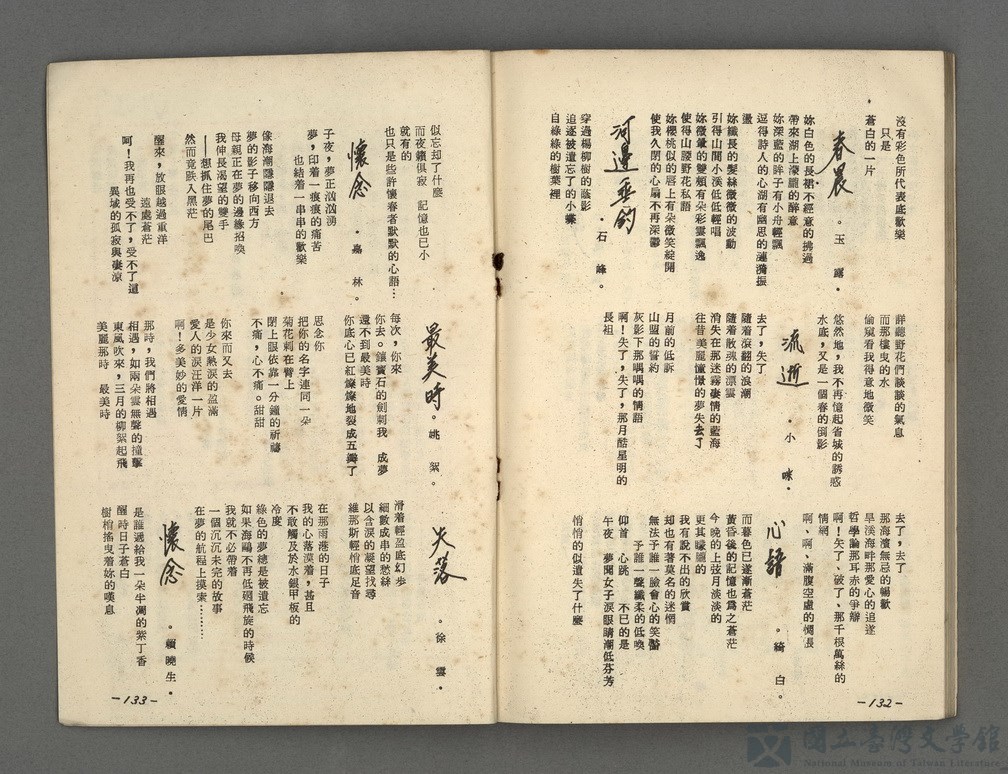 沒有彩色所代表底歡樂
只是
蒼白的一片
春晨
。玉露。
妳白色的長裙不經意的拂過
帶來湖上濛朧的醉意
妳深藍的眸子有小舟輕飄
逗得詩人的心湖有幽思的漣漪振
盪
妳纖長的髮絲微微的波動
引得山間小溪低低輕唱
妳微暈的雙頰有朵彩雲飄逸
使得山腰野花私語
妳櫻桃似的唇上有朵微笑綻開
使我久閉的心扇不再深鬱
河邊垂釣
·石峰。
穿過楊柳樹的蔭影
追逐被遺忘了的小蝶
自綠綠的樹葉裡
詳聽野花們談談的氣息
而那褸曳的水
偷窺着我得意地微笑
悠然地，我不再憶起省城的誘惑
水底，又是一個春的倒影
流逝
·小咪·
去了，失了
隨着滾翻的浪潮
隨着散魂的漂雲
消失在那迷霧凄情的藍海
往昔美麗憧憬的夢失去了
月前的低訴
山盟的誓約
灰影下那喁喁的情語
啊！失了，失了，那月酷星明的
長袓
去了，去了
那海濱無忌的暢歡
旱溪海畔那愛心的追逐
哲學論那耳赤的爭辯
啊！失了、破了、那千根萬絲的
情網
啊、啊、滿腹空虛的惆悵
心語
。綺白。
而暮色已逐漸蒼茫
黃昏後的記憶也爲之蒼茫
今晚的上弦月淡淡的
更其矇朧的
我有說不出的欣賞
却也有著莫名的迷惘
無法予誰一臉會心的笑靨
予誰一聲纖柔的低喚
仰首　心跳　不已的是
午夜　夢聞女子淚眼睛潮低芬芳
悄悄的似遺失了什麼
—132—
似忘却了什麼
而夜籟俱寂　記憶也已小
就有的
也只是些許懷春者默默的心語…
懷念
。嘉林。
子夜，夢正汹汹湧
夢，印着一痕痕的痛苦
也結着一串串的歡樂
像海潮隱隱退去
夢的影子移向西方
母親正在夢的邊緣招喚
我伸長渴望的雙手
——想抓住夢的尾巴
然而竟跌入黑茫
醒來，放眼越過重洋
遠處蒼茫
呵！我再也受不了，受不了這
異域的孤寂與凄涼
最美時
。姚絮。
每次，你來
你去。鑲寶石的劍刺我　成夢
還不到最美時
你底心已紅燦燦地裂成五瓣了
思念你
把你的名字連同一朵
菊花刺在臂上
閉上眼依靠一分鐘的祈禱
不痛，心不痛。甜甜
你來而又去
是少女熱淚的盈滿
愛人的淚汪洋一片
啊！多美妙的愛情
那時，我們將相遇
相遇，如兩朵雲無聲的撞擊
東風吹來，三月的柳絮起飛
美麗那時　最美時
失落
。徐雲。
滑着輕盈底幻步
細數成串的愁絲
以含淚的凝望找尋
維那斯輕悄底足音
在那雨港的日子
我的心落漠着，甚且
不敢觸及於水銀甲板的
冷度
綠色的夢總是被遺忘
如果海鷗不再低廻飛旋的時候
我就不必帶着
一個沉沉未完的故事
在夢的航程上摸索………
懷念
。賴曉生。
是誰遞給我一朵半凋的紫丁香
醒時日子蒼白
樹梢搖曳着妳的嘆息
—133—
國立臺灣文學館
National Museum of Taiwan Literature